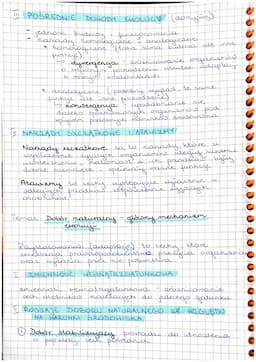 III POŚREDNIE DOWODY EWOLUCJI
- jedność budowy i funkcjonowania
- narządy homologiczne i analogiczne
* homologiczne (taka sama budowa ale inne funkcje)
→ dywergencja - zróżnicowanie organizmów
o wspólnym pochodzeniu
* analogiczne (podobny wygląd, te same
funkcje ale inne pochodzenie)
→ konwergencja - upodabnianie się
daleko spokrewnionych organizmów pod
wpływem podobnych warunków środowiska
NARZĄDY SZCZĄTKOWE I ATAWIZMY
Narządy szczątkowe są to narządy, które u
współcześnie żyjących organizmów uległy
uwstecznieniu, natomiast u ich przodków były
dobrze rozwinięte i spełniały ważne funkcje.
Atawizmy to cechy
Temat: Dobór naturalny - główny mechanizm
ewolucji.
Przystosowania (adaptacje) to cechy, które
zwiększają prawdopodobieństwo przeżycia organizmu
oraz wydania przez nie potomstwa.
I ZMIENNOŚĆ WEWNĄTRZGATUNKOWA
zmienność wewnątrzgatunkowa - zróżnicowanie
cech osobników należących do jednego gatunku
II RODZAJE DOBORU NATURALNEGO ZE WZGLĘDU
NA WARUNKI ŚRODOWISKA
① Dobór stabilizujący prowadzi do utrwalenia
w populacji cech